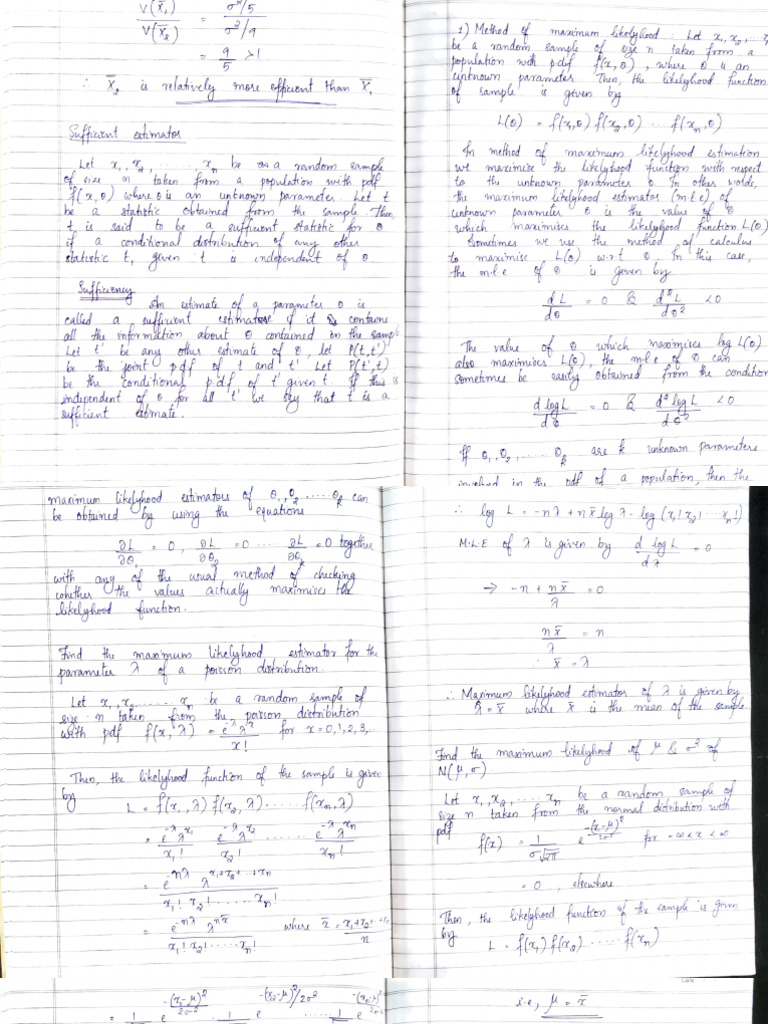 V(x̄₁) / V(x̄₂) = (σ²/5) / (σ²/9)
= 9/5 >1
∴ x̄₂ is relatively more efficient than x̄₁
Sufficient estimator
Let x₁, x₂, ...... xₙ be a random sample
of size n taken from a population with pdf
f(x, θ) where θ is an unknown parameter. Let t
be a statistic obtained from the sample. Then
t is said to be a sufficient statistic for θ
if a conditional distribution of any other
statistic t, given t is independent of θ
Sufficiency
An estimate of a parameter θ is
called a sufficient estimator if it contains
all the information about θ contained in the sample
Let t' be any other estimate of θ, let P(t,t')
be the joint pdf of t and t'. Let P(t',t)
be the conditional pdf of t' given t. If this is
independent of θ for all t' we say that t is a
sufficient estimate.
1) Method of maximum likelyhood : Let x₁, x₂, ...
be a random sample of size n taken from a
population with pdf f(x, θ), where θ is an
unknown parameter. Then, the likelyhood function
of sample is given by
L(θ) = f(x₁,θ) f(x₂,θ) ..... f(xₙ,θ)
In method of maximum likelyhood estimation
we maximise the likelyhood function with respect
to the unknown parameter θ. In other words,
the maximum likelyhood estimator (m.l.e) of
unknown parameter θ is the value of θ
which maximises the likelyhood function L(θ)
Sometimes we use the method of calculus
to maximise L(θ) w.r.t θ, In this case,
the m.l.e of θ is given by
dL/dθ = 0 & d²L/dθ² < 0
The value of θ which maximises log L(θ)
also maximises L(θ), the m.l.e of θ can
sometimes be easily obtained from the condition
d log L/dθ = 0 & d² log L/dθ² < 0
If θ₁, θ₂, ...... θₖ are k unknown parameters
involved in the pdf of a population, then the
maximum likelyhood estimators of θ₁, θ₂ ..... θₖ can
be obtained by using the equations
∂L/∂θ₁ = 0, ∂L/∂θ₂ = 0 ..... ∂L/∂θₖ = 0 together
with any of the usual method of checking
whether the values actually maximises the
likelyhood function.
Find the maximum likelyhood estimator for the
parameter λ of a poisson distribution.
Let x₁, x₂ ...... xₙ be a random sample of
size n taken from the poisson distribution
with pdf f(x, λ) = e^-λ λ^x / x! for x = 0,1,2,3,..
Then, the likelyhood function of the sample is given
by L = f(x₁,λ) f(x₂,λ) ...... f(xₙ,λ)
= e^-λ λ^x₁ / x₁! e^-λ λ^x₂ / x₂! ...... e^-λ λ^xₙ / xₙ!
= e^-nλ λ^(x₁+x₂+...+xₙ) / x₁! x₂! ...... xₙ!
= e^-nλ λ^nx̄ / x₁! x₂! ..... xₙ! where x̄ = x₁+x₂+...+xₙ / n
∴ log L = -nλ + nx̄ log λ - log (x₁! x₂! .... xₙ!)
M.L.E of λ is given by d log L / dλ = 0
⇒ -n + nx̄/λ = 0
nx̄/λ = n
∴ x̄ = λ
∴ Maximum likelyhood estimator of λ is given by
λ̂ = x̄ where x̄ is the mean of the sample
Find the maximum likelyhood of μ & σ² of
N(μ, σ)
Let x₁, x₂, ...... xₙ be a random sample of
size n taken from the normal distribution with
pdf f(x) = 1/σ√2π e^-(x-μ)²/2σ² for -∞ < x < ∞
= 0, elsewhere
Then, the likelyhood function of the sample is given
by L = f(x₁) f(x₂) ...... f(xₙ)
= 1 e^-(x₁-μ)²/2σ² . 1 e^-(x₂-μ)²/2σ² ..... 1 e^-(xₙ-μ)²/2σ²
i.e, μ = x̄